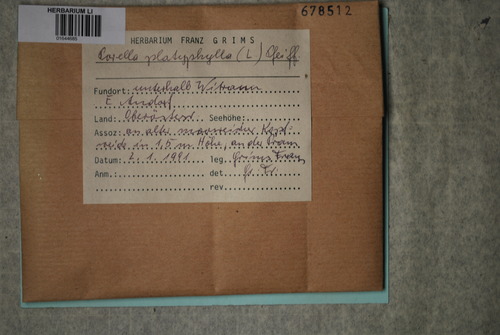 HERBARIUM LI
678512
HERBARIUM FRANZ GRIMS
Porella platyphylla (L.) Pfeiff.
Fundort: unterhalb
E
Land: Seehöhe:
Assoz: an alter
in 1,5 m Höhe, an der Pram
Datum: 2.1.1991 leg Grims Franz
Anm.: det Gr. Fr.
rev